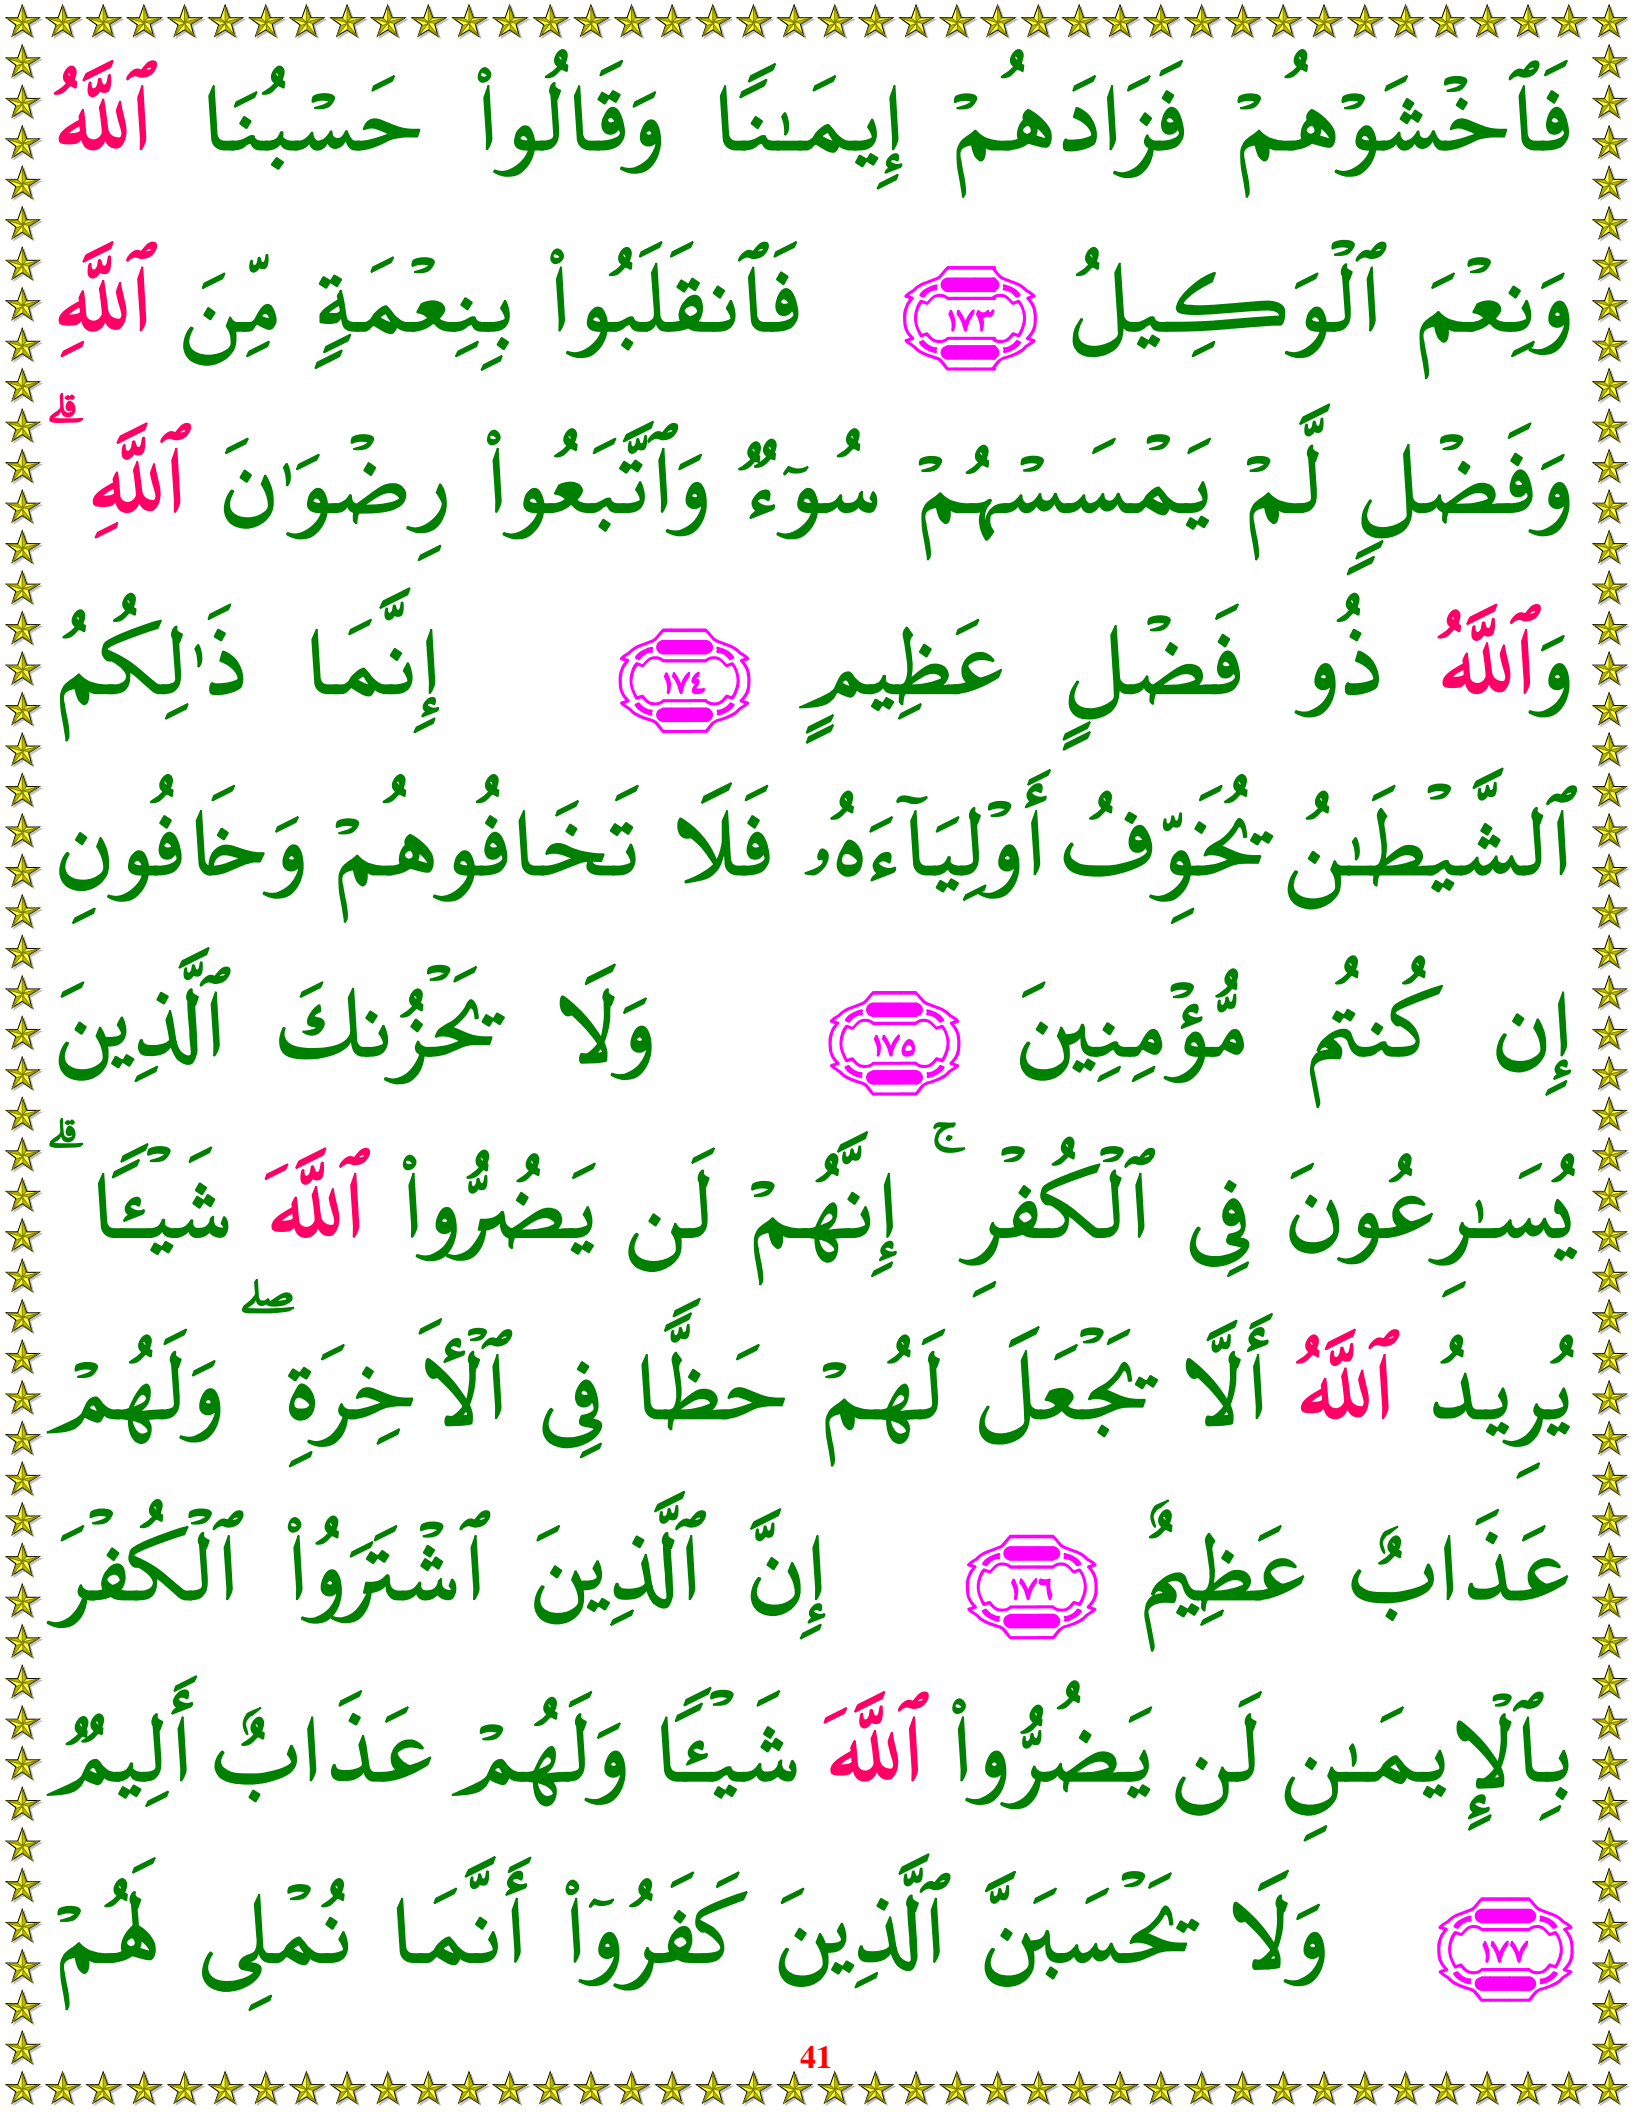 فَٱخۡشَوۡهُمۡ فَزَادَهُمۡ إِيمَـٰنًا وَقَالُوا۟ حَسۡبُنَا ٱللَّهُ
وَنِعۡمَ ٱلۡوَكِيلُ ١٧٣ فَٱنقَلَبُوا۟ بِنِعۡمَةٍ مِّنَ ٱللَّهِ
وَفَضۡلٍ لَّمۡ يَمۡسَسۡهُمۡ سُوۤءٌ وَٱتَّبَعُوا۟ رِضۡوَٰنَ ٱللَّهِۗ
وَٱللَّهُ ذُو فَضۡلٍ عَظِيمٍ ١٧٤ إِنَّمَا ذَٰلِكُمُ
ٱلشَّيۡطَـٰنُ يُخَوِّفُ أَوۡلِيَاۤءَهُۥ فَلَا تَخَافُوهُمۡ وَخَافُونِ
إِن كُنتُم مُّؤۡمِنِينَ ١٧٥ وَلَا يَحۡزُنكَ ٱلَّذِينَ
يُسَـٰرِعُونَ فِی ٱلۡكُفۡرِۚ إِنَّهُمۡ لَن يَضُرُّوا۟ ٱللَّهَ شَيۡـًٔاۗ
يُرِيدُ ٱللَّهُ أَلَّا يَجۡعَلَ لَهُمۡ حَظًّا فِی ٱلۡأَخِرَةِۖ وَلَهُمۡ
عَذَابٌ عَظِيمٌ ١٧٦ إِنَّ ٱلَّذِينَ ٱشۡتَرَوُا۟ ٱلۡكُفۡرَ
بِٱلۡإِيمَـٰنِ لَن يَضُرُّوا۟ ٱللَّهَ شَيۡـًٔا وَلَهُمۡ عَذَابٌ أَلِيمٌ
١٧٧ وَلَا يَحۡسَبَنَّ ٱلَّذِينَ كَفَرُوۤا۟ أَنَّمَا نُمۡلِی لَهُمۡ
41